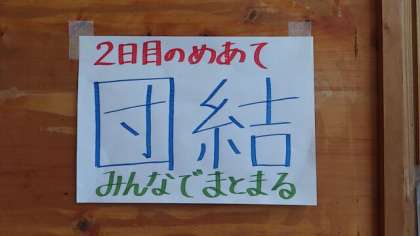 2日目のめあて
団結
みんなでまとまる